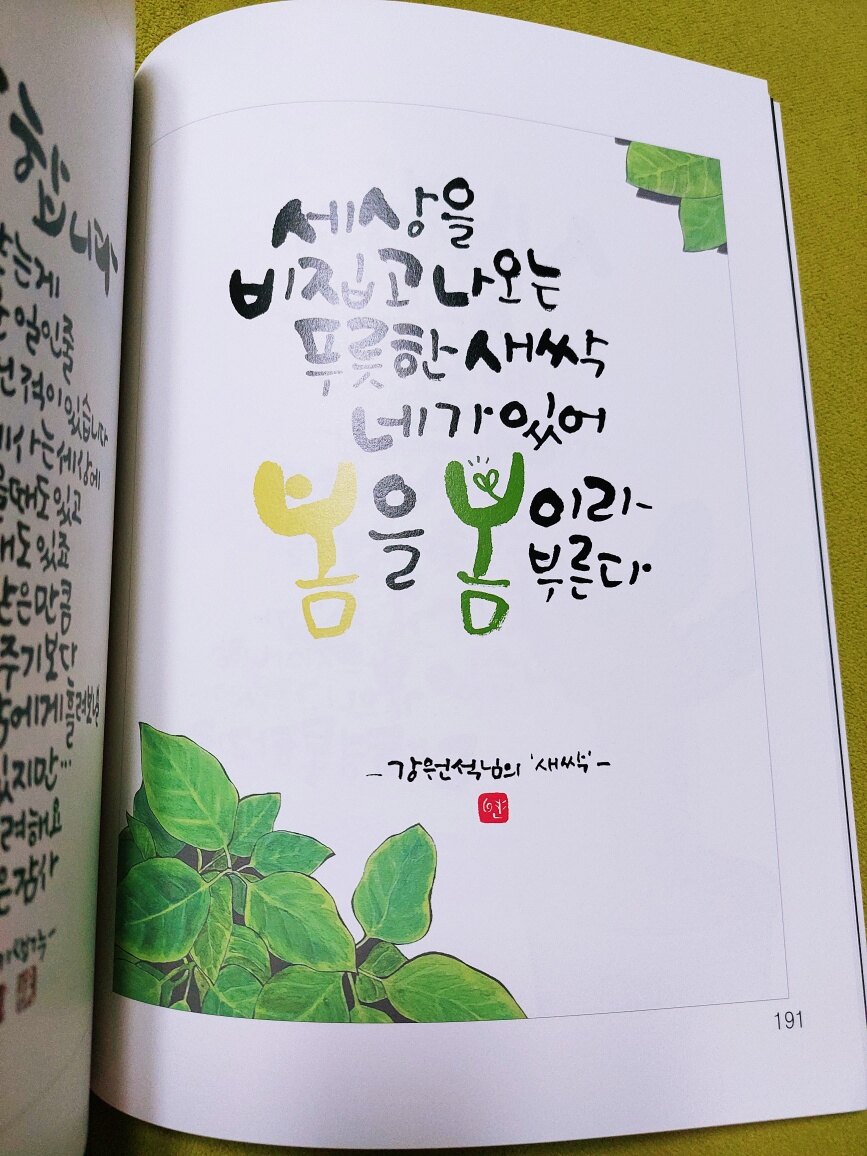 합니다
는게
일인줄
적이 있습니다
사는 세상에
때도 있고
때도 있죠
은 만큼
주기보다
에게 흘려보낸
있지만...
려해요
은 감사
세상을
비집고 나오는
푸릇한 새싹
네가 있어
봄을 봄이라
부른다
- 강원석님의 '새싹' -
연
191